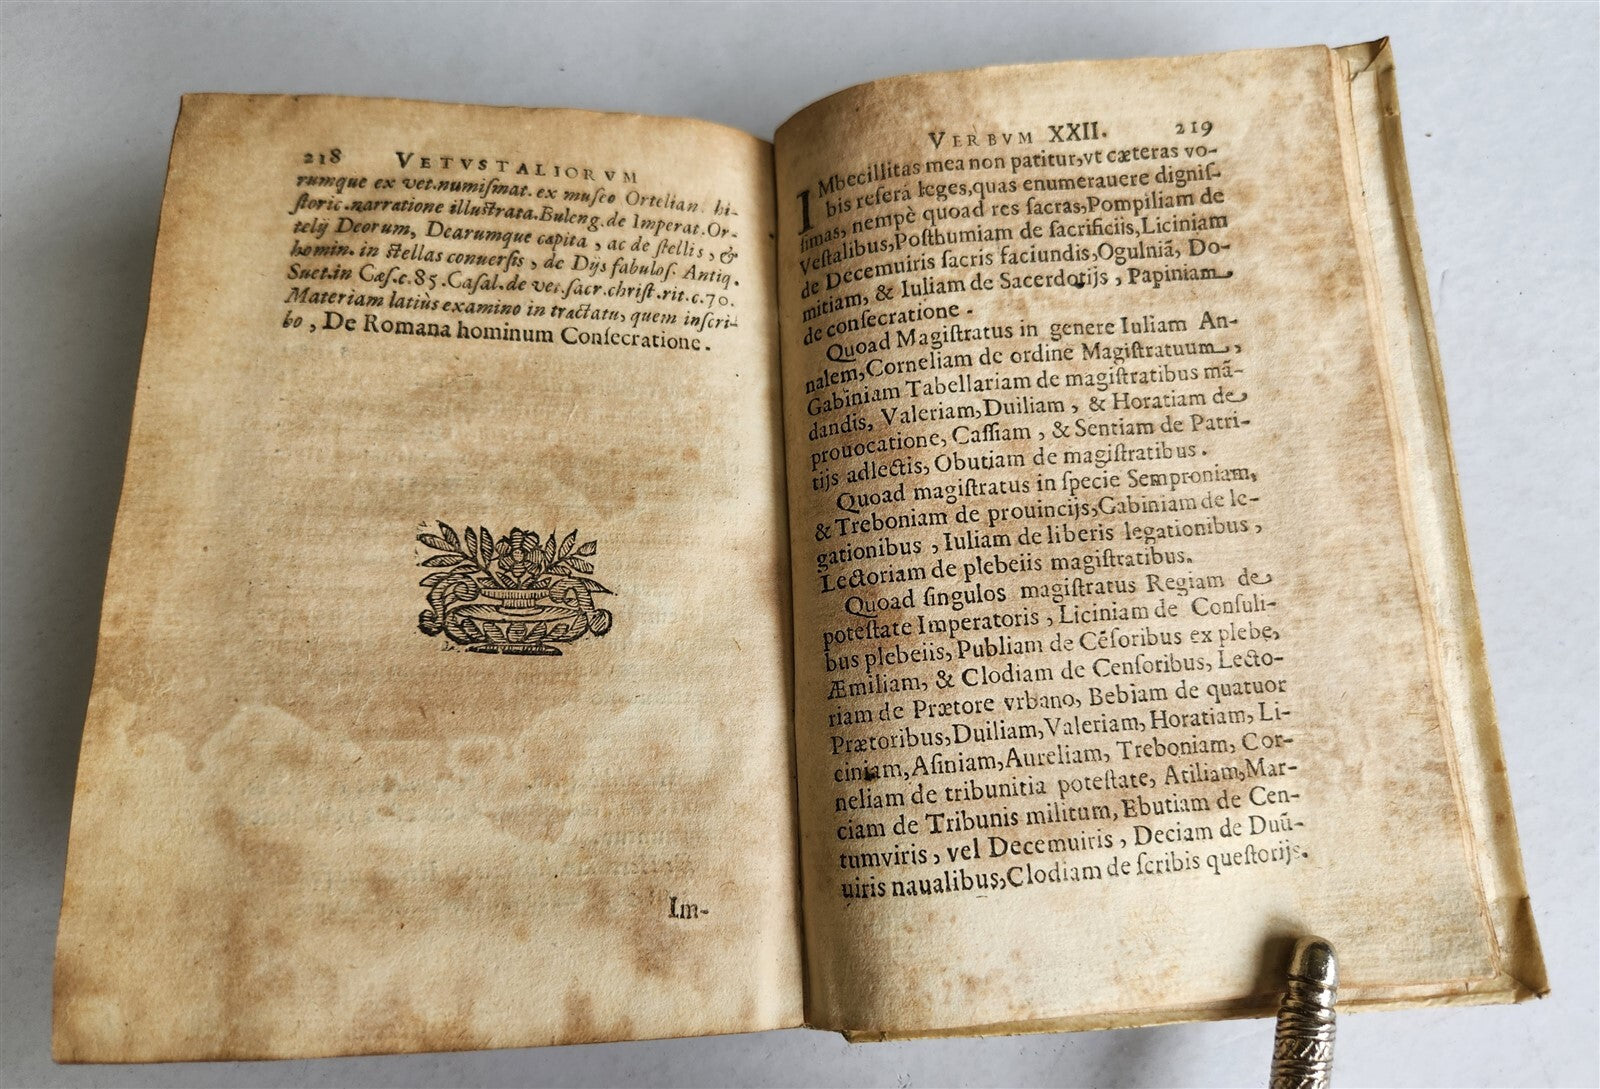 218 VETVSTALIORVM
rumque ex vet.numiſmat. ex muſeo Ortelian. hi-
ſtoric.narratione illuſtrata.Buleng.de Imperat.Or-
telij Deorum, Dearumque capita, ac de ſtellis, &
homin. in ſtellas conuerſis, de Dijs fabuloſ. Antiq.
Suet.in Cæſ.c.85.Caſal.de vet.ſacr.chriſt.rit.c.70.
Materiam latiùs examino in tractatu, quem inſcri-
bo, De Romana hominum Conſecratione.
Im-
VERBVM XXII. 219
IMbecillitas mea non patitur,vt cæteras vo-
bis referã leges,quas enumerauere digniſ-
ſimas, nempè quoad res ſacras,Pompiliam de
Veſtalibus,Poſthumiam de ſacrificiis,Liciniam
de Decemuiris ſacris faciundis,Ogulniã, Do-
mitiam, & Iuliam de Sacerdotijs, Papiniam
de conſecratione.
Quoad Magiſtratus in genere Iuliam An-
nalem,Corneliam de ordine Magiſtratuum,
Gabiniam Tabellariam de magiſtratibus mã-
dandis, Valeriam,Duiliam, & Horatiam de
prouocatione, Caſſiam, & Sentiam de Patri-
tijs adlectis, Obutiam de magiſtratibus.
Quoad magiſtratus in ſpecie Semproniam,
& Treboniam de prouincijs,Gabiniam de le-
gationibus, Iuliam de liberis legationibus,
Lectoriam de plebeiis magiſtratibus.
Quoad ſingulos magiſtratus Regiam de
poteſtate Imperatoris, Liciniam de Conſuli-
bus plebeiis, Publiam de Cẽſoribus ex plebe,
Æmiliam, & Clodiam de Cenſoribus, Lecto-
riam de Prætore vrbano, Bebiam de quatuor
Prætoribus,Duiliam,Valeriam, Horatiam, Li-
ciniam,Aſiniam,Aureliam, Treboniam, Cor-
neliam de tribunitia poteſtate, Atiliam,Mar-
ciam de Tribunis militum,Ebutiam de Cen-
tumviris, vel Decemuiris, Deciam de Duũ-
uiris naualibus,Clodiam de ſcribis queſtorijs.